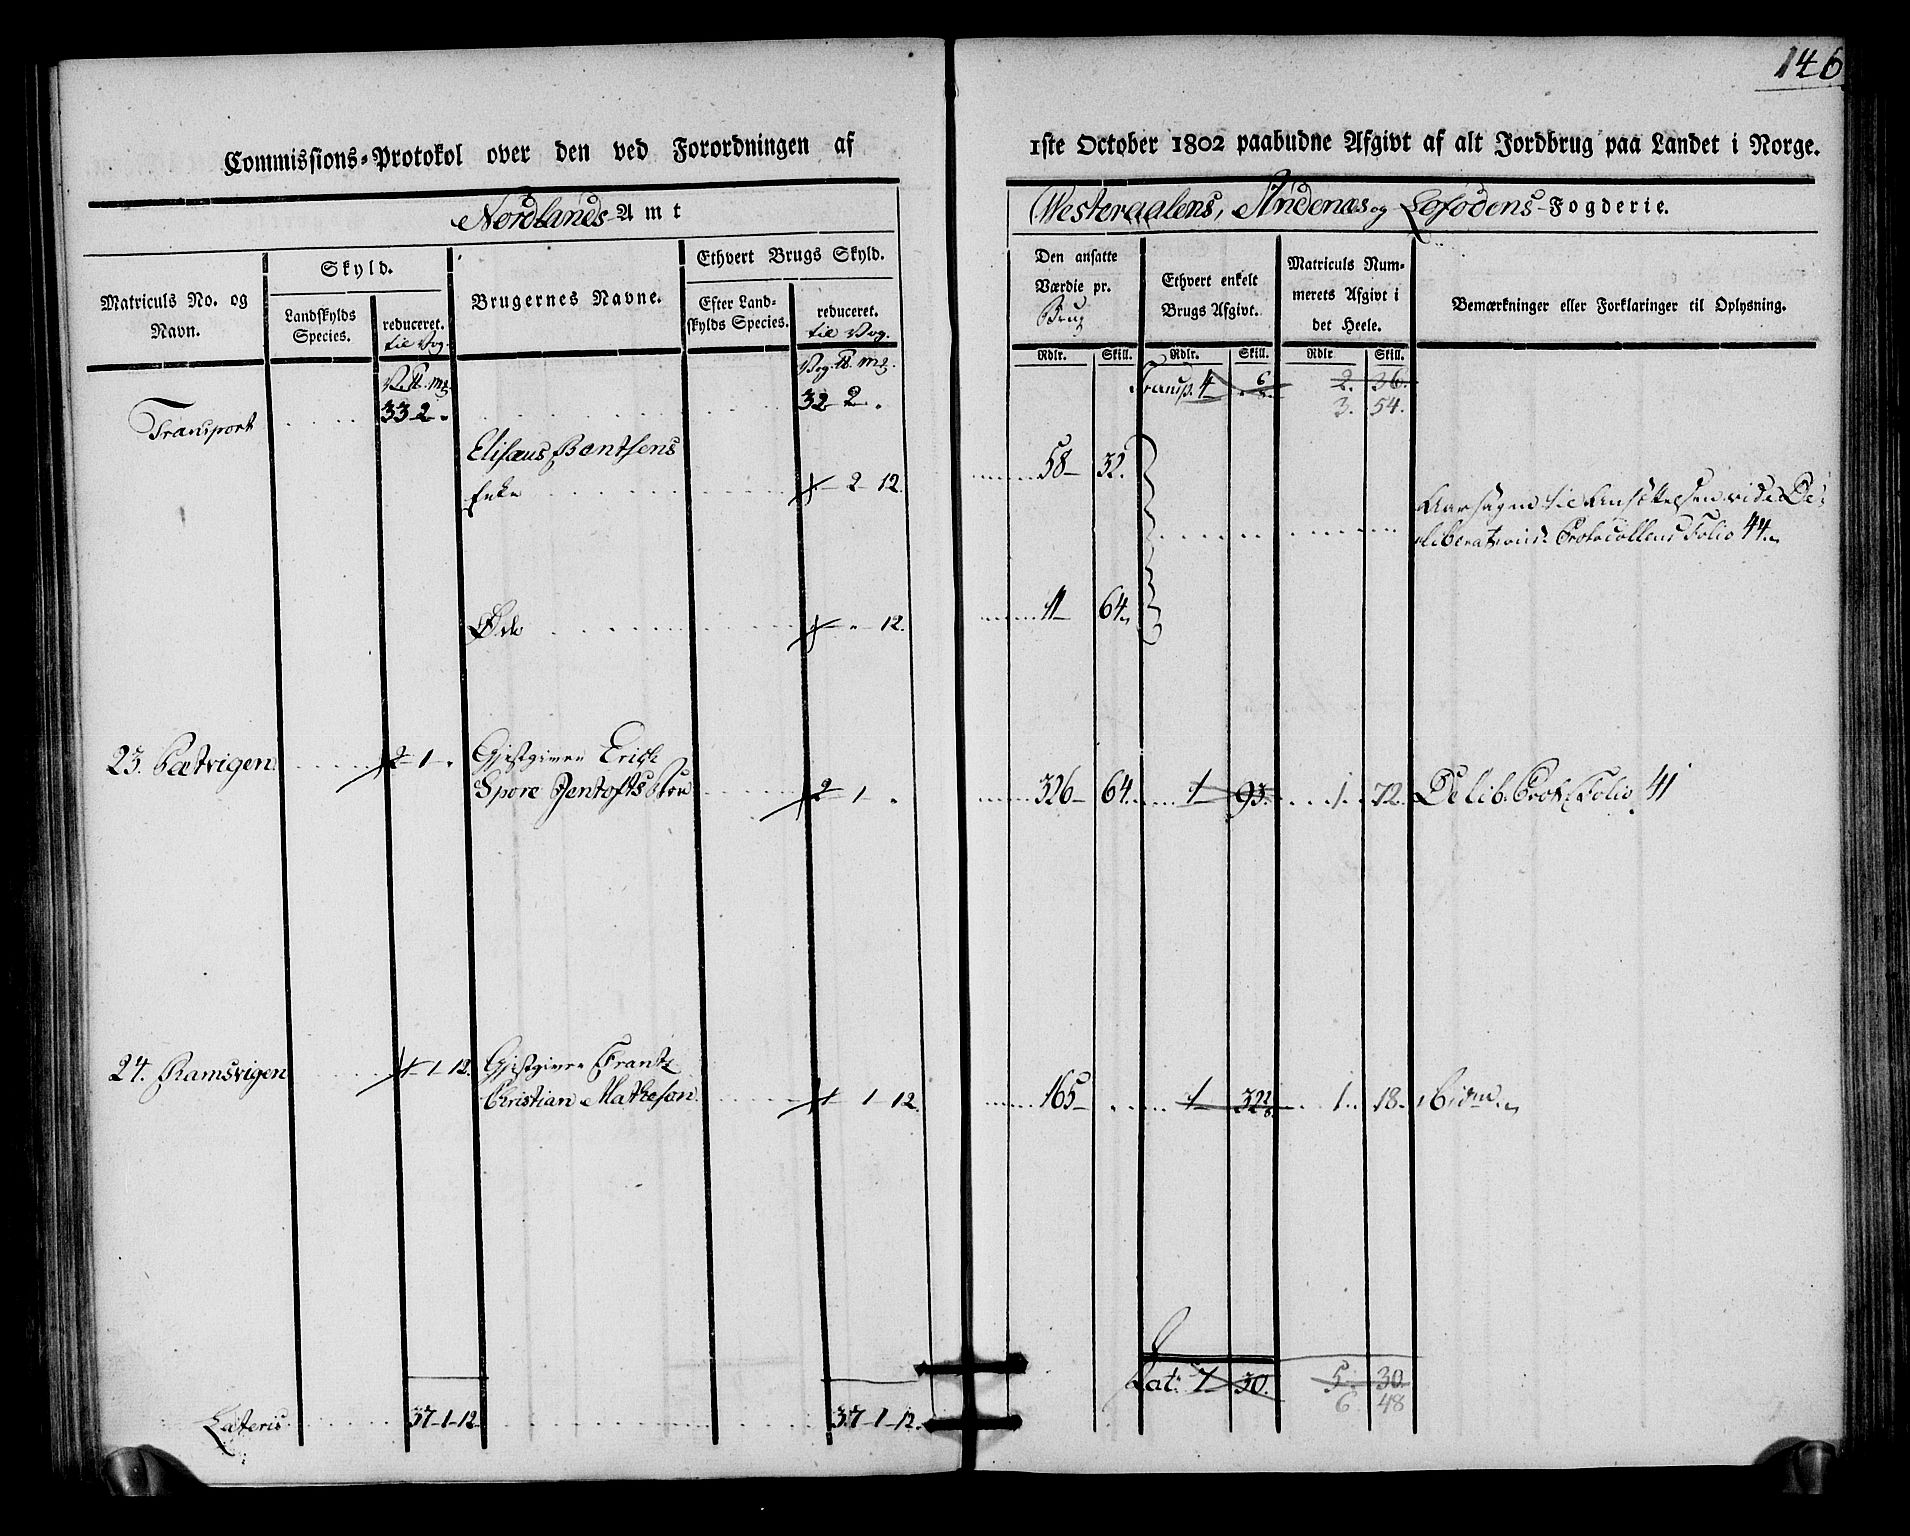 146
Commissions-Protokol over den ved Forordningen af
1ste October 1802 paabudne Afgivt af alt Jordbrug paa Landet i Norge.
Nordlands Amt
Westeraalens, Andenæs og Lofodens Fogderie.
Matriculs No. og
Navn.
Skyld.
Landskylds
Species.
reduceret.
til Vog.
Brugernes Navne.
Ethvert Brugs Skyld.
Efter Land-
skylds Species.
reduceret.
til Vog.
Den ansatte
Værdie pr.
Brug
Ethvert enkelt
Brugs Afgivt.
Matriculs Num-
merets Afgivt i
det Heele.
Bemærkninger eller Forklaringer til Oplysning.
Rdlr. Skill. Rdlr. Skill. Rdlr Skill.
Transp. 4 6 2. 36.
3. 54.
Transport 33 2 . 32 2 .
Elisæus Bentsens
Enke 2 12. 58 32.
Aarsagen til Ansættelsen vide De-
liberations Protocollens Folio 44.
Øde 12. 11 64.
23. Pætvigen 2 1 . Gjestgiver Erich
Spore Jentofts 2 1 . 326 64. 1 93. 1. 72. Delib. Prot. Folio 41
24. Ramsvigen 1 1 12. Gjestgiver Frantz
Christian Mathesen 1 1 12. 165 1 32 1. 18. ibidem
Lat: 7 30. 5. 30.
6 48
Lateris 37 1 12 37 1 12.